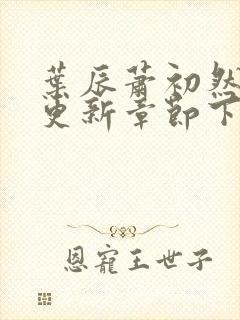 葉辰蕭初然
更新章節下
恩寵王世子